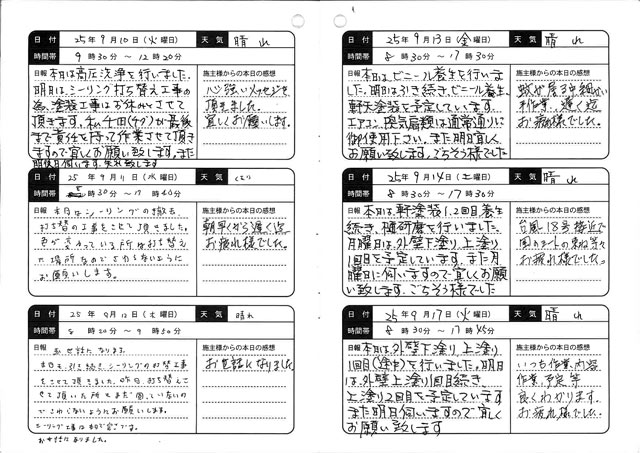 日付 25年9月10日(火曜日) 天気 晴れ
時間帯 9時30分～12時20分
日報 本日は高圧洗浄を行いました。
明日は、シーリング打ち替え工事の
為、塗装工事はお休みとさせて
頂きます。私、千田(チダ)が最後
まで責任を持って作業させて頂き
ますので宜しくお願い致します。また
明日伺います。失礼致します
施主様からの本日の感想
力強いメッセージを
頂きました。
宜しくお願いします。
日付 25年9月11日(水曜日) 天気 くもり
時間帯 8時30分～17時40分
日報 本日はシーリングの撤去、
打ち替の工事をさせて頂きました。
色が変わっている所は打ち替えた
場所なのでさわらないように
お願いします。
施主様からの本日の感想
朝早くから遅く迄
お疲れ様でした。
日付 25年9月12日(木曜日) 天気 晴れ
時間帯 8時20分～9時50分
日報 お世話になります。
本日も引き続きシーリングの打替工事
をさせて頂きました。昨日、打ち替えさ
せて頂いた所もまだ固っていないの
で さわらないようにお願いします。
シーリング工事は本日で完了です。
お世話になりました。
施主様からの本日の感想
お世話になりました
日付 25年9月13日(金曜日) 天気 晴れ
時間帯 8時30分～17時30分
日報 本日は、ビニール養生を行いまし
た。明日は引き続き、ビニール養生、
軒天塗装を予定しています。
エアコン、換気扇類は通常通りに
御使用下さい。また明日宜しく
お願い致します。ごちそう様でした
施主様からの本日の感想
蚊が居る中細かい
作業、遅く迄
お疲れ様でした。
日付 25年9月14日(土曜日) 天気 晴れ
時間帯 8時30分～17時30分
日報 本日は、軒塗装1.2回目、養生
続き、樋研磨を行いました。
月曜日は、外壁下塗り、上塗り
1回目を予定しています。また月
曜日に伺いますので宜しくお願
い致します。ごちそう様でした
施主様からの本日の感想
台風18号接近で
周りのシートの束ね等々
お疲れ様でした。
日付 25年9月17日(火曜日) 天気 晴れ
時間帯 8時30分～17時45分
日報 本日は、外壁下塗り、上塗り
1回目(途中)を行いました。明日
は、外壁上塗り1回目続き、
上塗り2回目を予定しています
また明日伺いますので宜しく
お願い致します
施主様からの本日の感想
いつも作業、内容
作業、予定等
良くわかります。
お疲れ様でした。